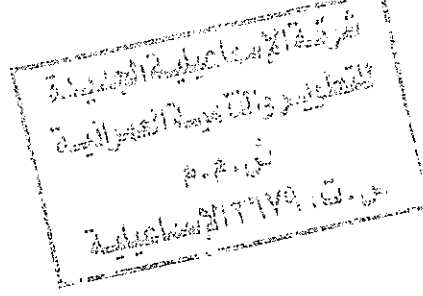 شركة الإسماعيلية الجديدة
للتطوير والتنمية العمرانية
ش.م.م
س.ت. ١٦٦٧٩ الإسماعيلية